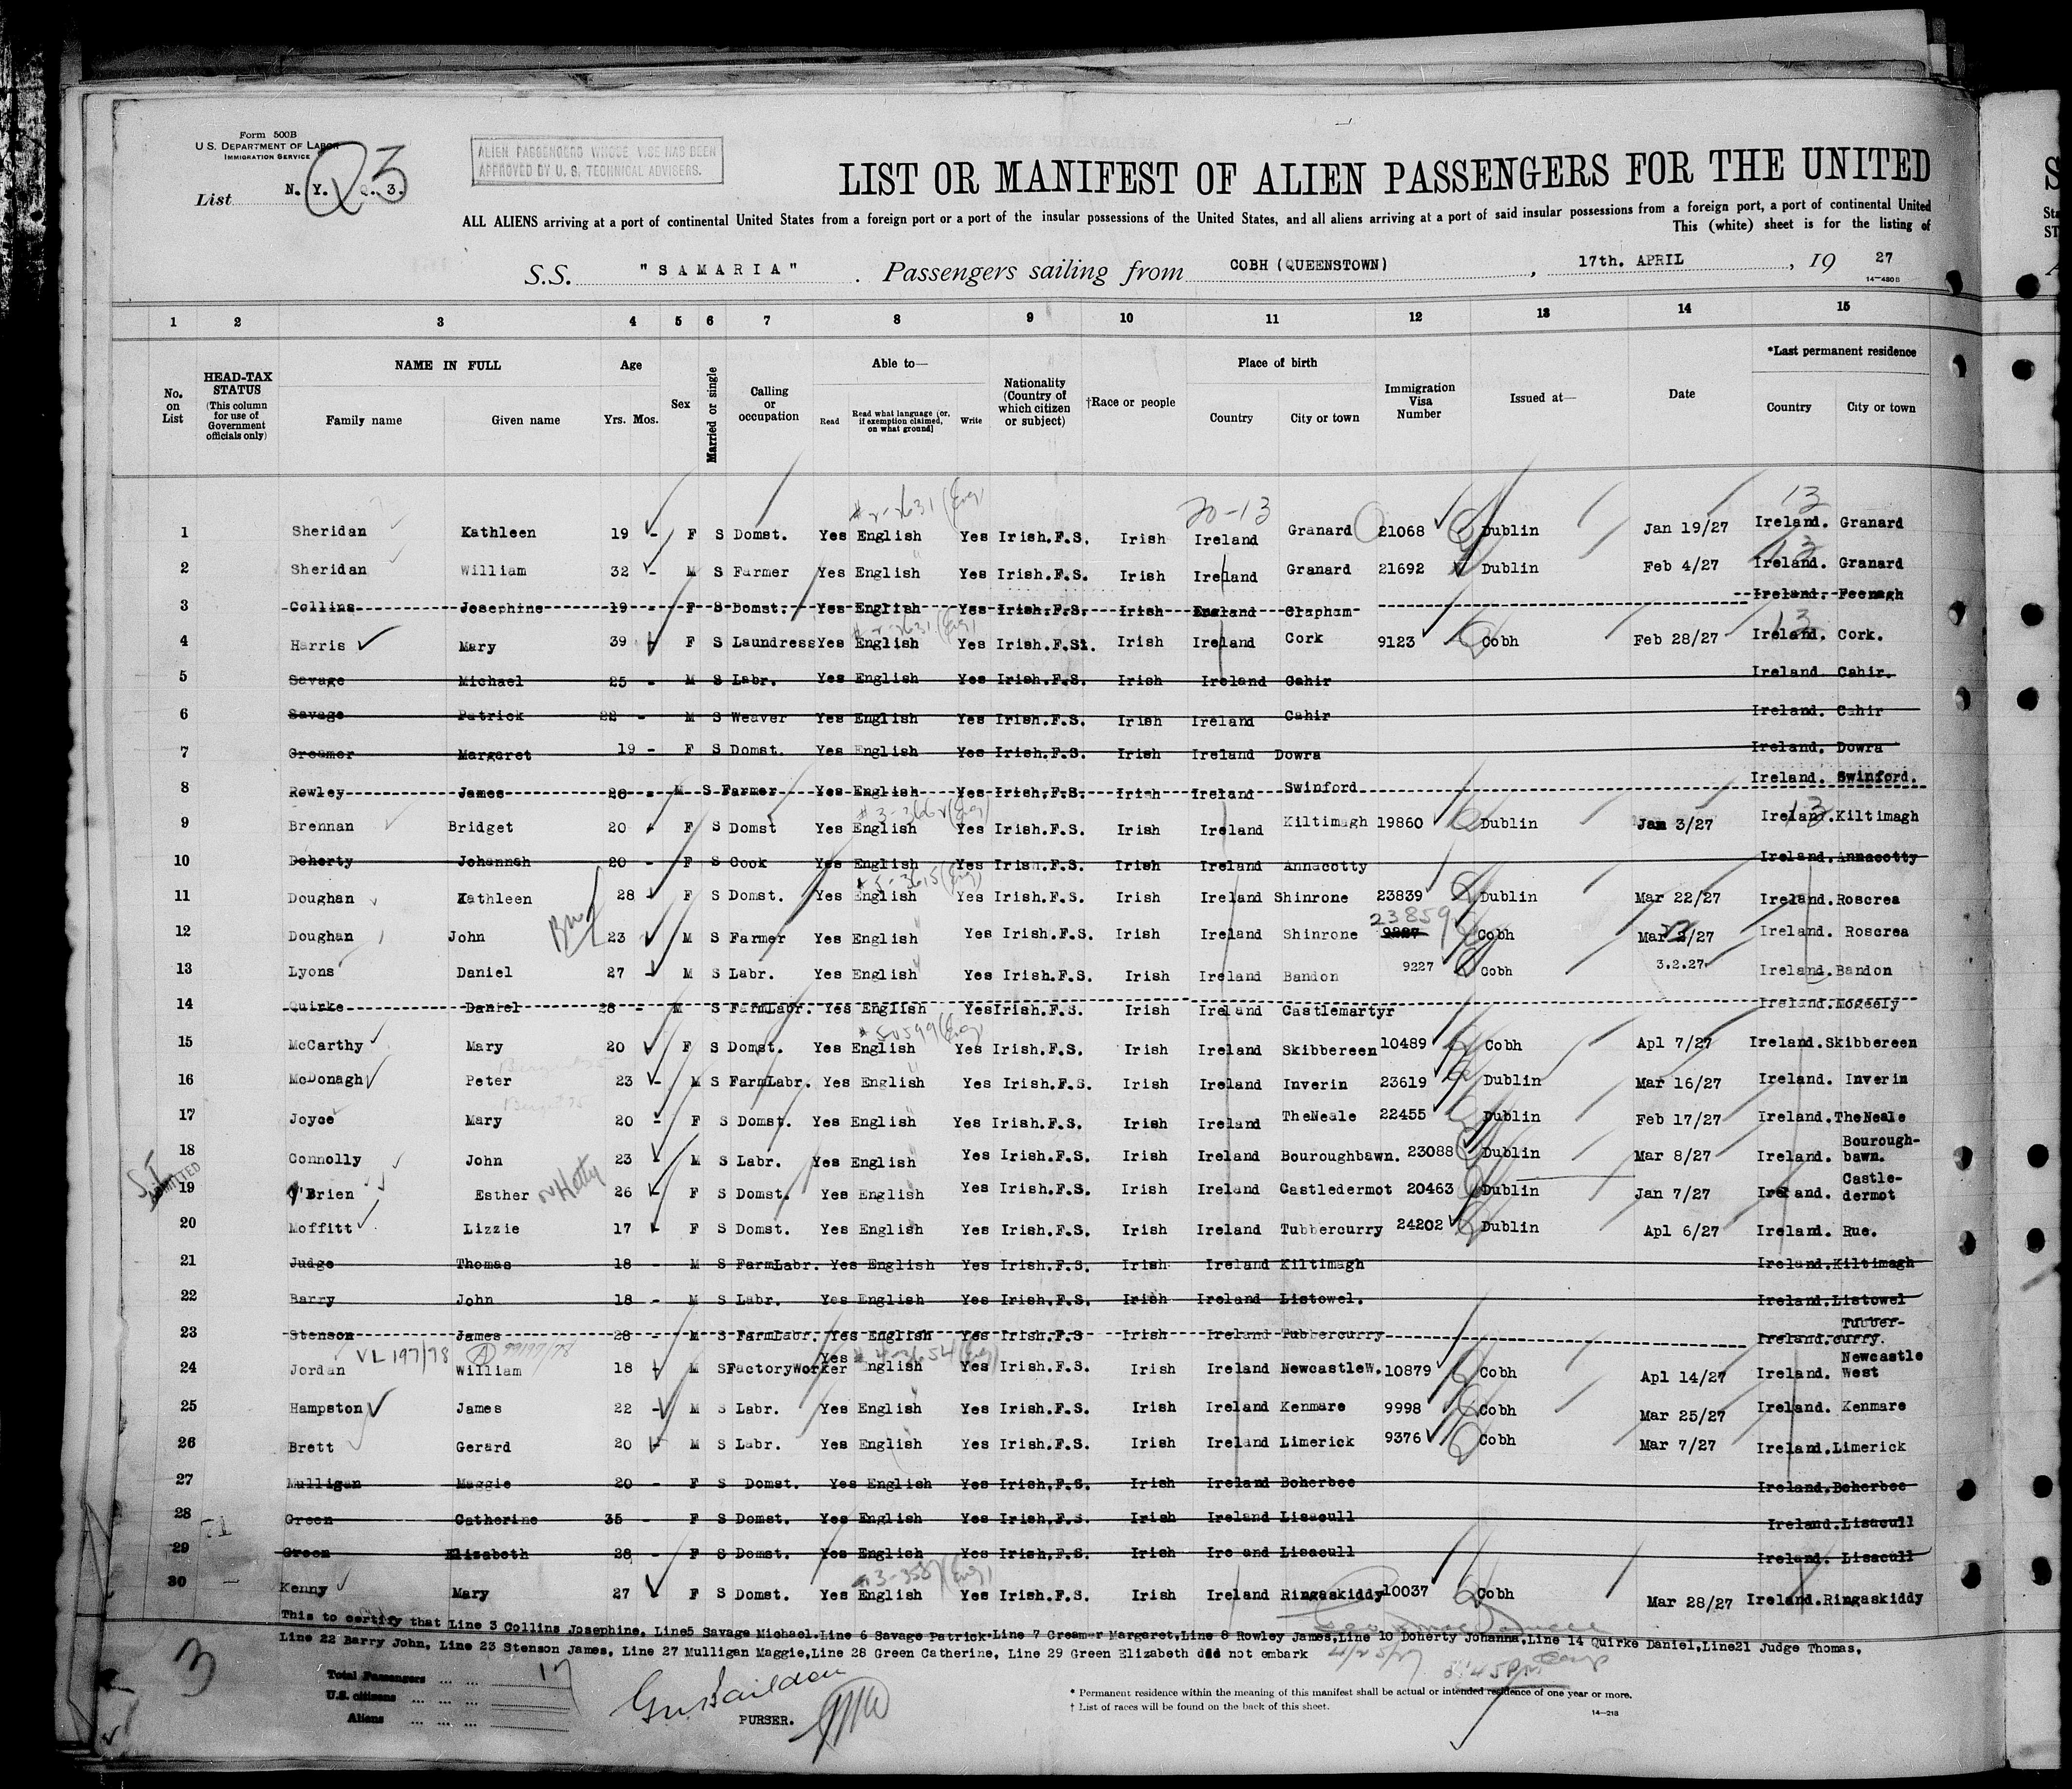 Form 500B
U. S. DEPARTMENT OF LABOR
IMMIGRATION SERVICE
List N. Y. Q. 3.
Q3
ALIEN PASSENGERS WHOSE VISE HAS BEEN
APPROVED BY U. S. TECHNICAL ADVISERS.
LIST OR MANIFEST OF ALIEN PASSENGERS FOR THE UNITED
ALL ALIENS arriving at a port of continental United States from a foreign port or a port of the insular possessions of the United States, and all aliens arriving at a port of said insular possessions from a foreign port, a port of continental United
This (white) sheet is for the listing of
S.S. "SAMARIA". Passengers sailing from COBH (QUEENSTOWN), 17th. APRIL, 19 27
14-430B
1 2 3 4 5 6 7 8 9 10 11 12 13 14 15
No. on List
HEAD-TAX STATUS (This column for use of Government officials only)
NAME IN FULL
Family name Given name
Age
Yrs. Mos.
Sex
Married or single
Calling or occupation
Able to—
Read Read what language (or, if exemption claimed, on what ground) Write
Nationality (Country of which citizen or subject)
†Race or people
Place of birth
Country City or town
Immigration Visa Number
Issued at—
Date
*Last permanent residence
Country City or town
20-13 13
1 Sheridan Kathleen 19 - F S Domst. Yes English Yes Irish.F.S. Irish Ireland Granard 21068 Dublin Jan 19/27 Ireland. Granard
13
2 Sheridan William 32 - M S Farmer Yes English Yes Irish.F.S. Irish Ireland Granard 21692 Dublin Feb 4/27 Ireland. Granard
3 Collins Josephine 19 - F S Domst. Yes English Yes Irish.F.S. Irish England Clapham Ireland. Feenagh
13
4 Harris Mary 39 - F S Laundress Yes English Yes Irish.F.St. Irish Ireland Cork 9123 Cobh Feb 28/27 Ireland. Cork.
5 Savage Michael 25 - M S Labr. Yes English Yes Irish.F.S. Irish Ireland Cahir Ireland. Cahir.
6 Savage Patrick 22 - M S Weaver Yes English Yes Irish.F.S. Irish Ireland Cahir Ireland. Cahir
7 Creamer Margaret 19 - F S Domst. Yes English Yes Irish.F.S. Irish Ireland Dowra Ireland. Dowra
8 Rowley James 26 - M S Farmer Yes English Yes Irish.F.S. Irish Ireland Swinford Ireland. Swinford.
13
9 Brennan Bridget 20 - F S Domst Yes English Yes Irish.F.S. Irish Ireland Kiltimagh 19860 Dublin Jan 3/27 Ireland.Kiltimagh
10 Doherty Johannah 20 - F S Cook Yes English Yes Irish.F.S. Irish Ireland Annacotty Ireland.Annacotty
11 Doughan Kathleen 28 - F S Domst. Yes English Yes Irish.F.S. Irish Ireland Shinrone 23839 Dublin Mar 22/27 Ireland.Roscrea
23859
12 Doughan John 23 - M S Farmer Yes English Yes Irish.F.S. Irish Ireland Shinrone 9227 Cobh Mar 2/27 Ireland. Roscrea
13 Lyons Daniel 27 - M S Labr. Yes English Yes Irish.F.S. Irish Ireland Bandon 9227 Cobh 3.2.27. Ireland.Bandon
14 Quirke Daniel 28 - M S FarmLabr. Yes English Yes Irish.F.S. Irish Ireland Castlemartyr Ireland.Mogeely
15 McCarthy Mary 20 - F S Domst. Yes English Yes Irish.F.S. Irish Ireland Skibbereen 10489 Cobh Apl 7/27 Ireland.Skibbereen
16 McDonagh Peter 23 - M S FarmLabr. Yes English Yes Irish.F.S. Irish Ireland Inverin 23619 Dublin Mar 16/27 Ireland. Inverin
17 Joyce Mary 20 - F S Domst. Yes English Yes Irish.F.S. Irish Ireland TheNeale 22455 Dublin Feb 17/27 Ireland.TheNeale
18 Connolly John 23 - M S Labr. Yes English Yes Irish.F.S. Irish Ireland Bouroughbawn. 23088 Dublin Mar 8/27 Ireland. Bourough-bawn.
19 O'Brien Esther or Hetty 26 - F S Domst. Yes English Yes Irish.F.S. Irish Ireland Castledermot 20463 Dublin Jan 7/27 Ireland. Castle-dermot
20 Moffitt Lizzie 17 - F S Domst. Yes English Yes Irish.F.S. Irish Ireland Tubbercurry 24202 Dublin Apl 6/27 Ireland. Rue.
21 Judge Thomas 18 - M S FarmLabr. Yes English Yes Irish.F.S. Irish Ireland Kiltimagh Ireland.Kiltimagh
22 Barry John 18 - M S Labr. Yes English Yes Irish.F.S. Irish Ireland Listowel. Ireland.Listowel
23 Stenson James 28 - M S FarmLabr. Yes English Yes Irish.F.S Irish Ireland Tubbercurry Ireland. Tubber-curry.
VL 197/78
24 Jordan William 18 - M S FactoryWorker Yes English Yes Irish.F.S. Irish Ireland NewcastleW. 10879 Cobh Apl 14/27 Ireland. Newcastle West
25 Hampston James 22 - M S Labr. Yes English Yes Irish.F.S. Irish Ireland Kenmare 9998 Cobh Mar 25/27 Ireland. Kenmare
26 Brett Gerard 20 - M S Labr. Yes English Yes Irish.F.S. Irish Ireland Limerick 9376 Cobh Mar 7/27 Ireland.Limerick
27 Mulligan Maggie 20 - F S Domst. Yes English Yes Irish.F.S. Irish Ireland Boherbee Ireland.Boherbee
28 Green Catherine 35 - F S Domst. Yes English Yes Irish.F.S. Irish Ireland Lisacull Ireland.Lisacull
29 Green Elizabeth 28 - F S Domst. Yes English Yes Irish.F.S. Irish Ire and Lisacull Ireland. Lisacull
30 Kenny Mary 27 F S Domst. Yes English Yes Irish.F.S. Irish Ireland Ringaskiddy 10037 Cobh Mar 28/27 Ireland.Ringaskiddy
This to certify that Line 3 Collins Josephine, Line5 Savage Michael.Line 6 Savage Patrick.Line 7 Creamer Margaret,Line 8 Rowley James,Line 10 Doherty Johanna,Line 14 Quirke Daniel,Line21 Judge Thomas,
Line 22 Barry John, Line 23 Stenson James, Line 27 Mulligan Maggie,Line 28 Green Catherine, Line 29 Green Elizabeth did not embark
3
Total Passengers ... ... 17
U.S. citizens ... ... ...
Aliens ... ... ...
PURSER.
* Permanent residence within the meaning of this manifest shall be actual or intended residence of one year or more.
† List of races will be found on the back of this sheet.
14-218